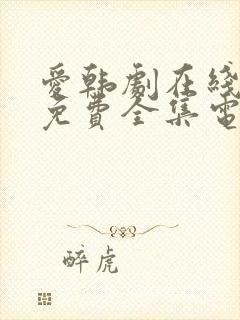 愛韩劇在綫
免費全集電
醉虎